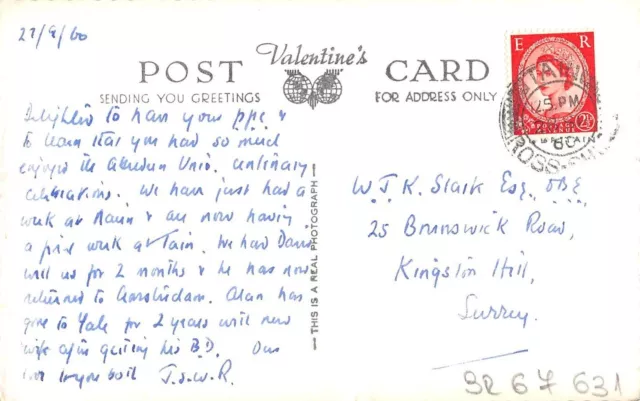 27/9/60
Valentine's
POST CARD
SENDING YOU GREETINGS
FOR ADDRESS ONLY
E R
POSTAGE
REVENUE
2½
TAIN
5 PM
60
ROSS-
Delighted to have your ppc &
to learn that you had so much
enjoyed the Aberdeen Univ. Centenary
celebrations. We have just had a
week at & are now having
a week at Tain. We had David
with us for 2 months & he has now
returned to Amsterdam. Alan has
gone to Yale for 2 years with new
wife after getting his B.D. Our
love to you both J.S.W.R.
— THIS IS A REAL PHOTOGRAPH —
W J K Slark Esq., OBE
25 Brunswick Road,
Kingston Hill,
Surrey.
SR 67 631